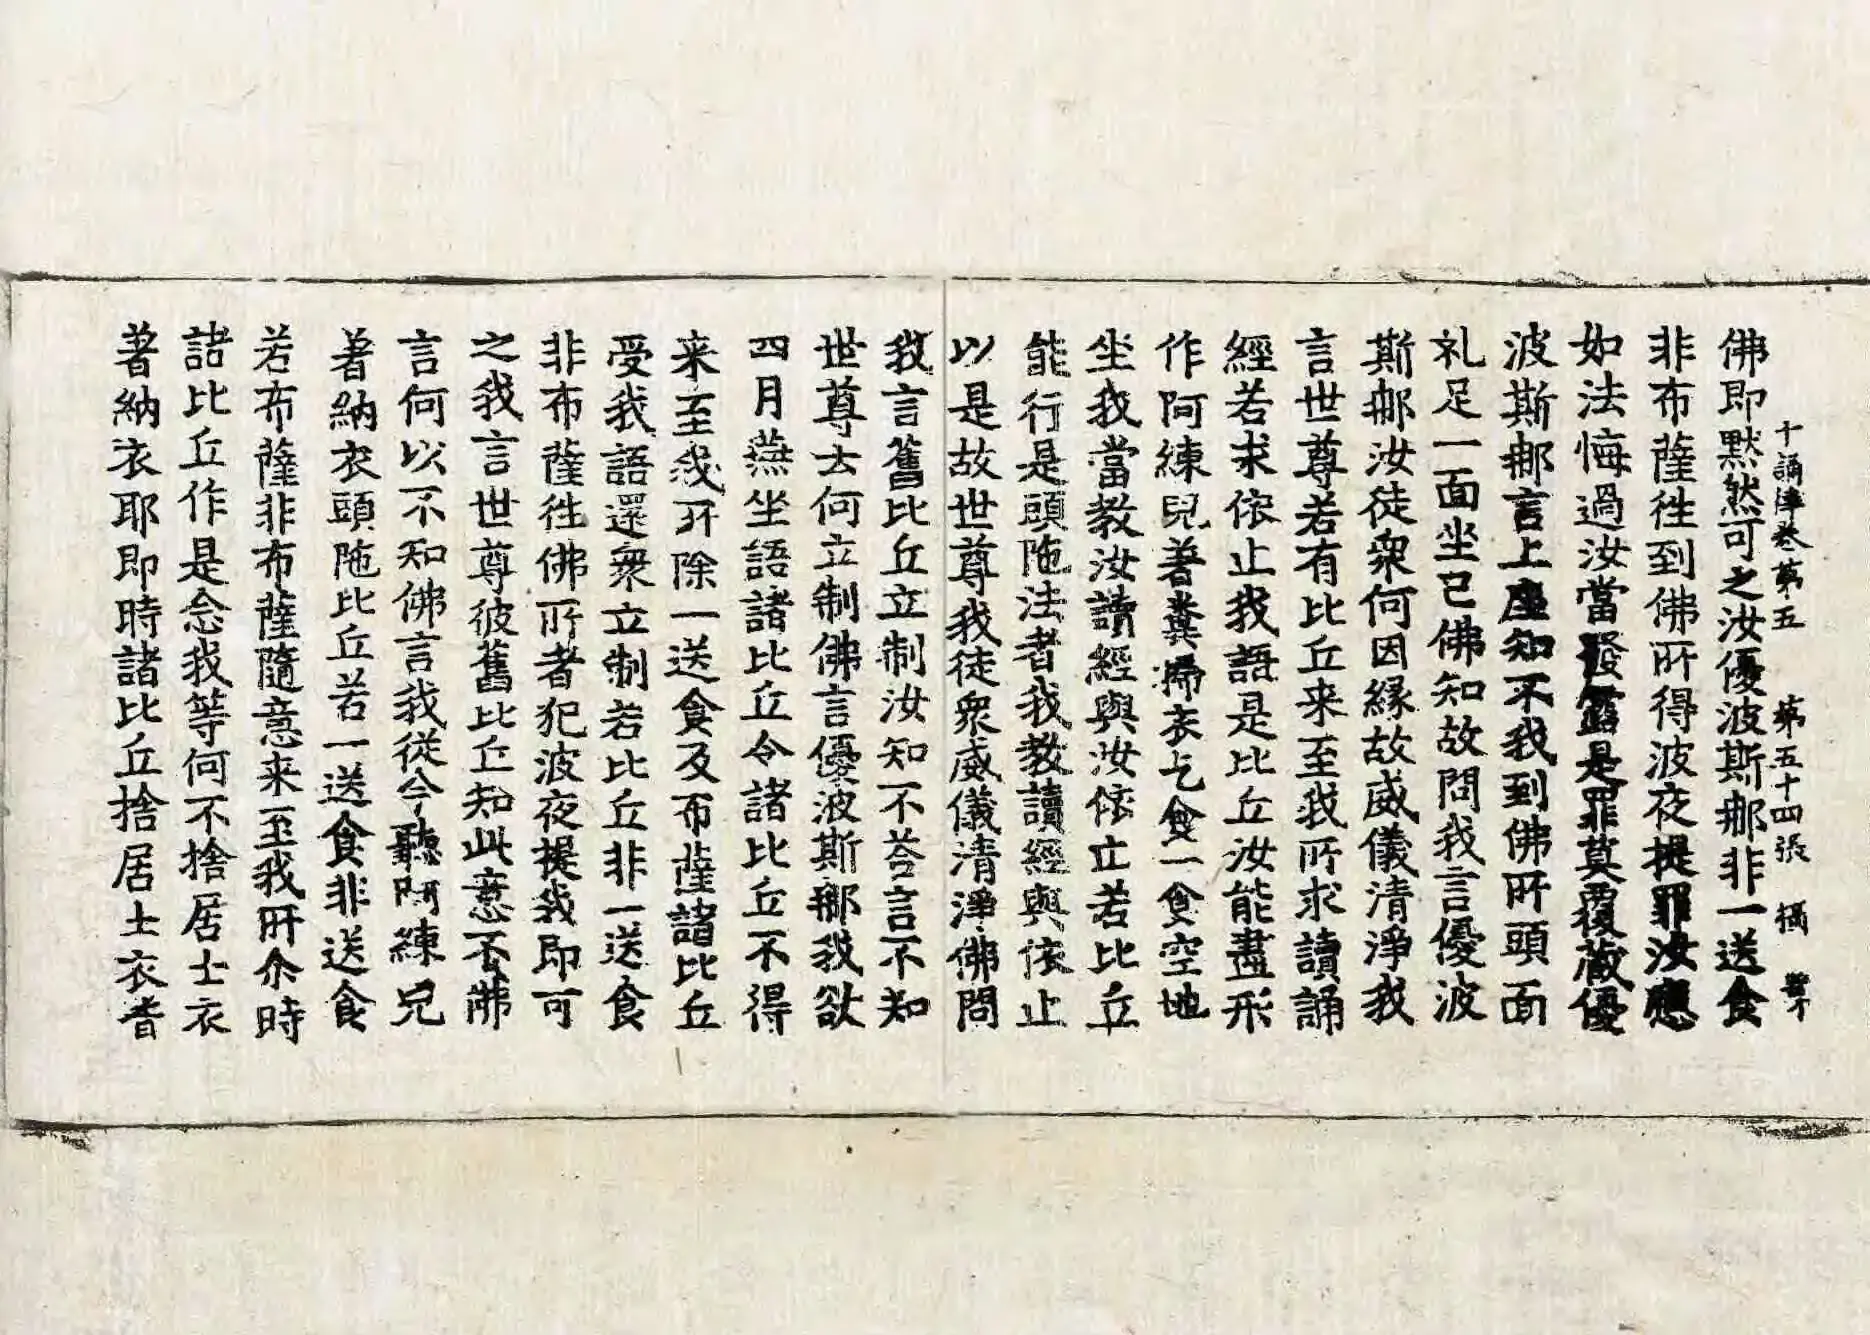 十誦律卷第五　第五十四張　攝
佛即默然可之汝優波斯那非一送食
非布薩徃到佛所得波夜提罪汝應
如法悔過汝當發露是罪莫覆藏優
波斯那言上座知不我到佛所頭面
礼足一面坐已佛知故問我言優波
斯那汝徒衆何因緣故威儀清淨我
言世尊若有比丘来至我所求讀誦
經若求依止我語是比丘汝能盡形
作阿練兒著糞掃衣乞食一食空地
坐我當教汝讀經與汝依立若比丘
能行是頭陁法者我教讀經與依止
以是故世尊我徒衆威儀清淨佛問
我言舊比丘立制汝知不荅言不知
世尊云何立制佛言優波斯那我欲
四月燕坐語諸比丘令諸比丘不得
来至我所除一送食及布薩諸比丘
受我語還衆立制若比丘非一送食
非布薩徃佛所者犯波夜提我即可
之我言世尊彼舊比丘知此意不佛
言何以不知佛言我従今聽阿練兒
著納衣頭陁比丘若一送食非送食
若布薩非布薩隨意来至我所尒時
諸比丘作是念我等何不捨居士衣
著納衣耶即時諸比丘捨居士衣者